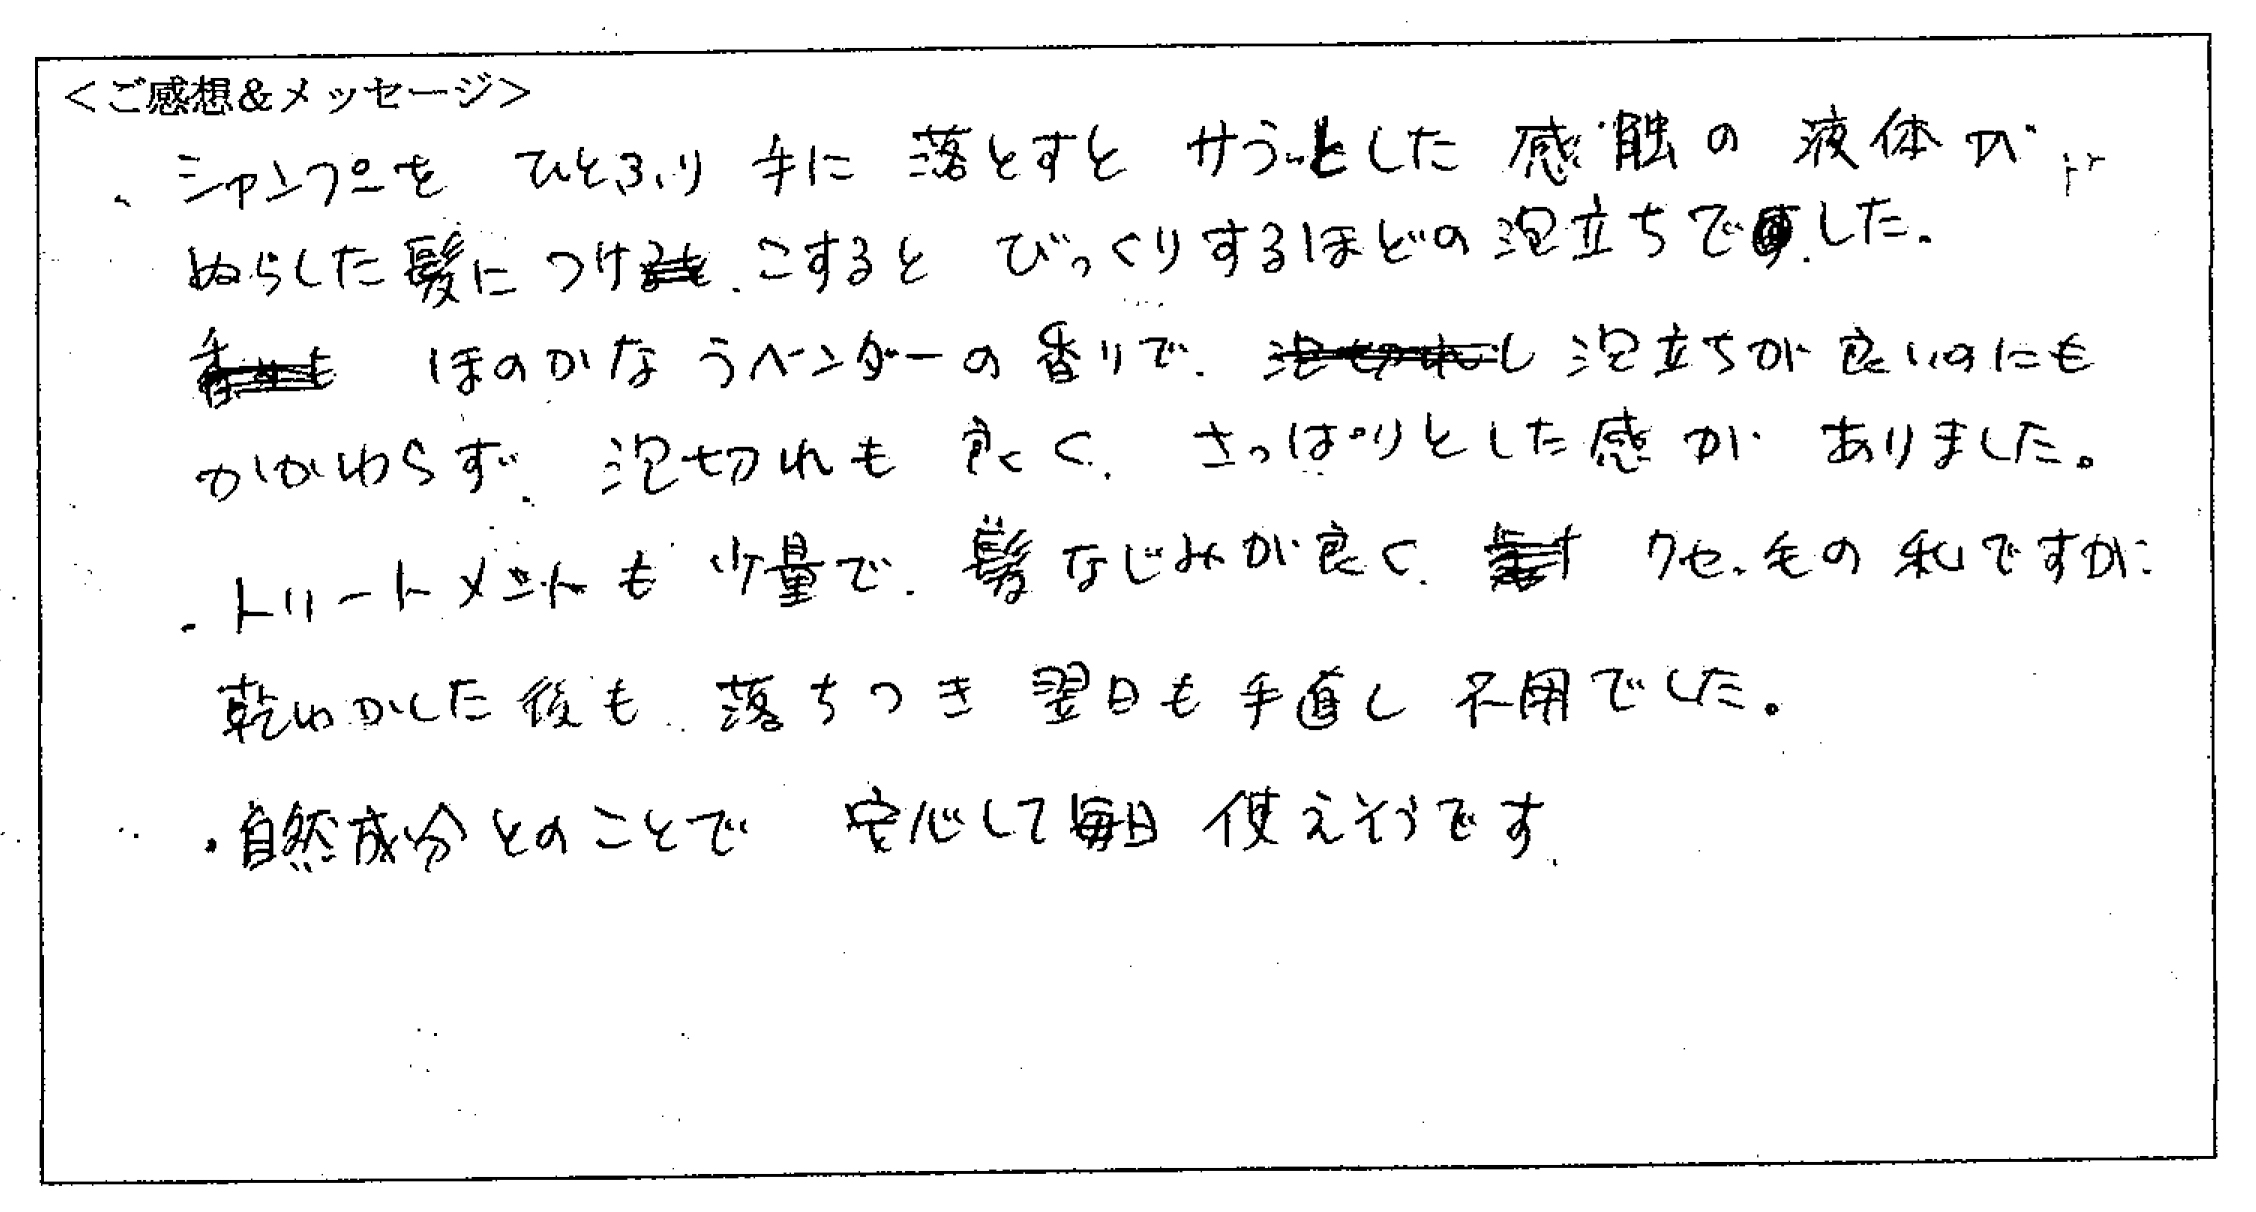 ＜ご感想&メッセージ＞
・シャンプーをひとふり手に落とすとサラッとした感触の液体が
ぬらした髪につけ、こするとびっくりするほどの泡立ちでした。
ほのかなラベンダーの香りで、泡立ちが良いのにも
かかわらず、泡切れも良く、さっぱりとした感がありました。
・トリートメントも少量で、髪なじみが良く、クセ毛の私ですが
乾わかした後も落ちつき翌日も手直し不用でした。
・自然成分とのことで 安心して毎日使えそうです